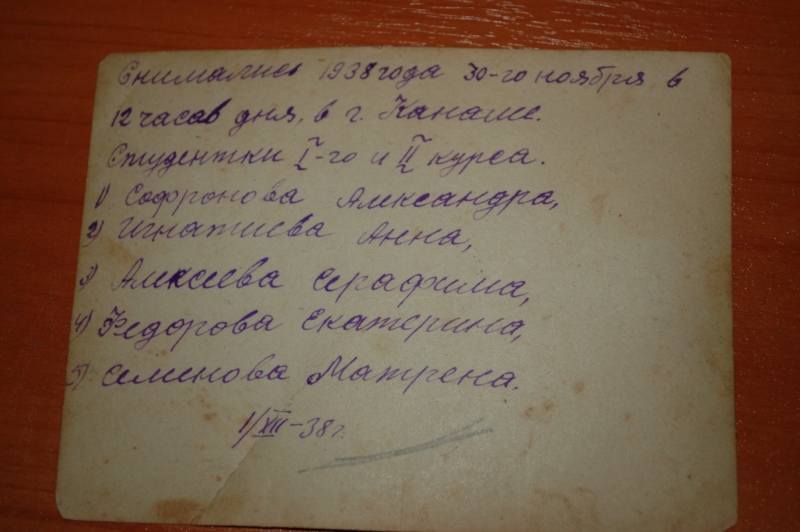 Снимались 1938 года 30-го ноября в
12 часов дня, в г. Канаше.
Студентки I-го и II курса.
1) Софронова Александра,
2) Игнатиева Анна,
3) Алексеева Серафима,
4) Федорова Екатерина,
5) Семенова Матрена.
1/XII-38 г.